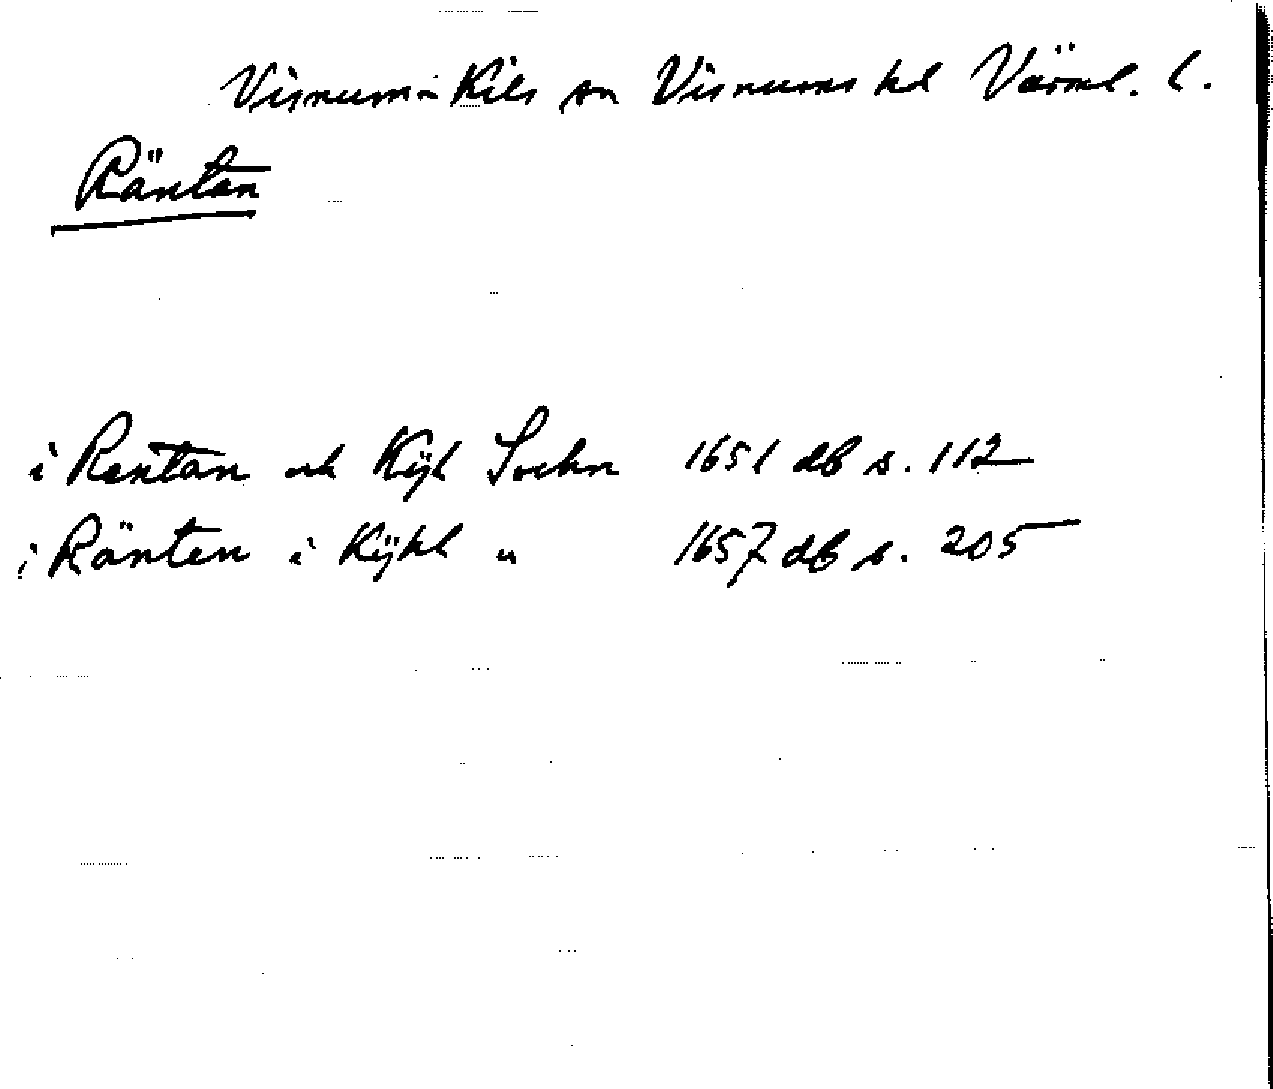 Visnums-Kils sn Visnums hd Värml. l.
Räntan
i Rentan och Kijl Sochn 1651 db s. 112
i Ränten i Kijhl " 1657 db s. 205